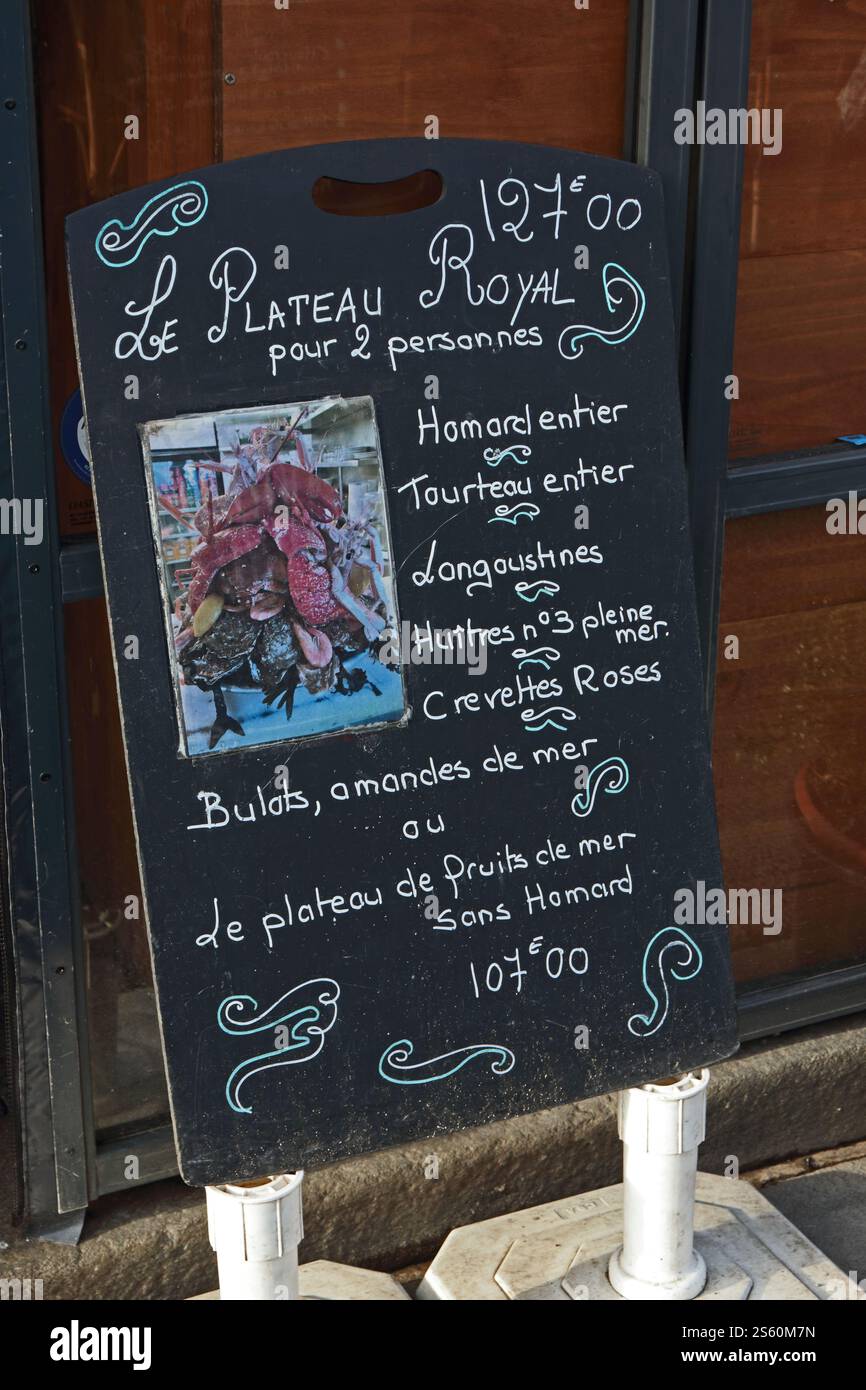 127€00
Le Plateau Royal
pour 2 personnes
Homard entier
Tourteau entier
Langoustines
Huîtres n°3 pleine
mer.
Crevettes Roses
Bulots, amandes de mer
ou
Le plateau de fruits de mer
sans Homard
107€00
alamy
Image ID: 2S60M7N
www.alamy.com